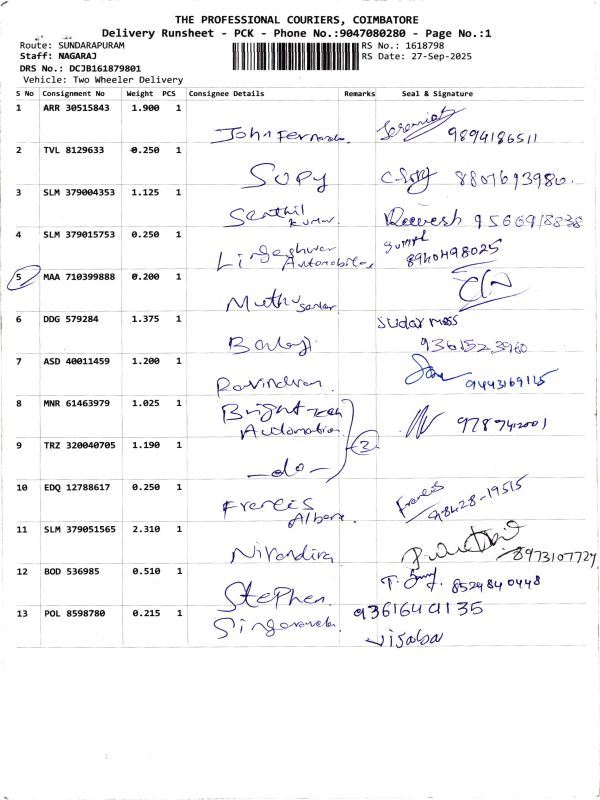 THE PROFESSIONAL COURIERS, COIMBATORE
Delivery Runsheet - PCK - Phone No.:9047080280 - Page No.:1
Route: SUNDARAPURAM
Staff: NAGARAJ
DRS No.: DCJB161879801
Vehicle: Two Wheeler Delivery
RS No.: 1618798
RS Date: 27-Sep-2025
S No Consignment No Weight PCS Consignee Details Remarks Seal & Signature
1 ARR 30515843 1.900 1
John Fernando 9894186511
2 TVL 8129633 0.250 1
Sopy 8807693980.
3 SLM 379004353 1.125 1
Senthil Kumar. 9566918838
4 SLM 379015753 0.250 1
Lingeshwar Automobiles 8940498025
5 MAA 710399888 0.200 1
Muthu
6 DDG 579284 1.375 1
Balaji Sudar moss
9361523960
7 ASD 40011459 1.200 1
Ravindran. 9443169115
8 MNR 61463979 1.025 1
Bright Tech
Automation 9787412001
9 TRZ 320040705 1.190 1
-do- 2
10 EDQ 12788617 0.250 1
Francis Francis
98428-19515
11 SLM 379051565 2.310 1
8973107724
12 BOD 536985 0.510 1
Stephen. 8524840448
13 POL 8598780 0.215 1
9361644135